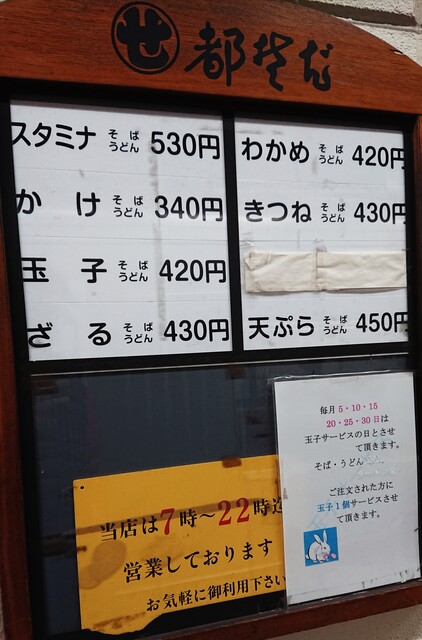 せ 都そば
スタミナ そば うどん 530円
かけ そば うどん 340円
玉子 そば うどん 420円
ざる そば うどん 430円
わかめ そば うどん 420円
きつね そば うどん 430円
天ぷら そば うどん 450円
毎月5・10・15
20・25・30日は
玉子サービスの日とさせ
て頂きます。
そば・うどん
ご注文された方に
玉子1個サービスさせ
て頂きます。
当店は7時～22時迄
営業しております
お気軽に御利用下さい